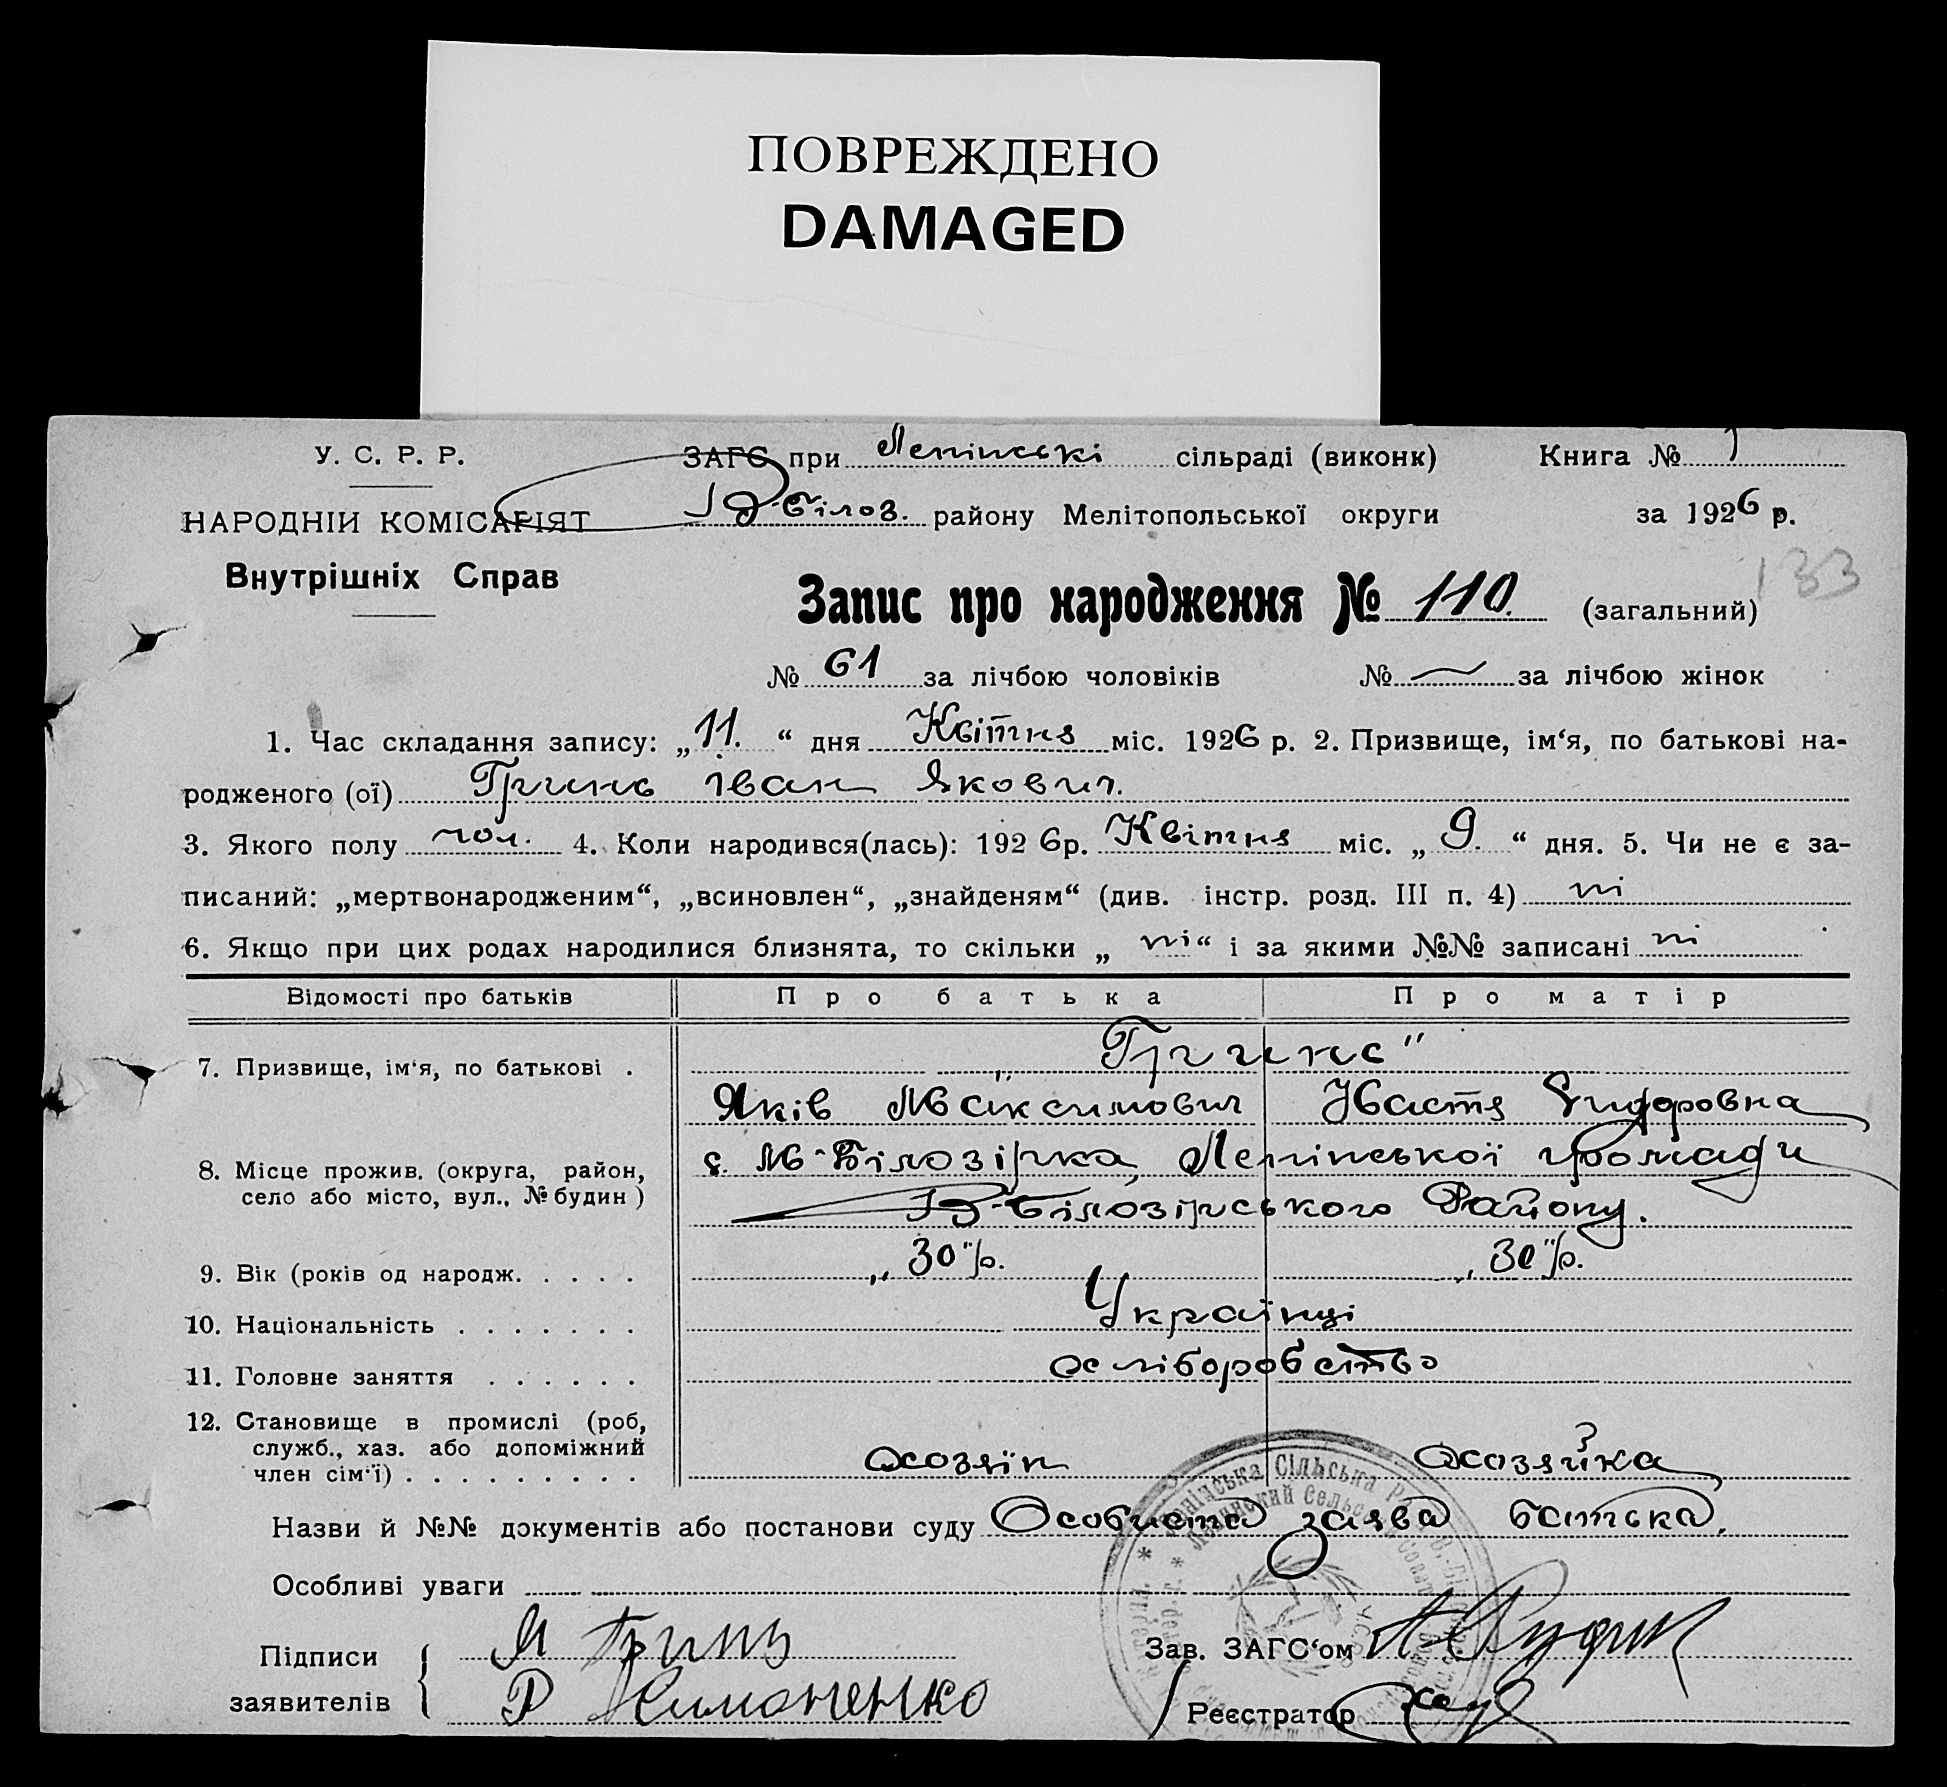 ПОВРЕЖДЕНО
DAMAGED
У. С. Р. Р.
ЗАГС при Ленінські сільраді (виконк) Книга № 1
НАРОДНІЙ КОМІСАРІЯТ
В-Білоз. району Мелітопольської округи за 1926 р.
Внутрішніх Справ
133
Запис про народження № 110. (загальний)
№ 61 за лічбою чоловіків № — за лічбою жінок
1. Час складання запису: „11.“ дня Квітня міс. 1926 р. 2. Призвище, ім‘я, по батькові на-
родженого (ої) Гринь Іван Якович.
3. Якого полу чол. 4. Коли народився(лась): 1926р. Квітня міс. „9.“ дня. 5. Чи не є за-
писаний: „мертвонародженим“, „всиновлен“, „знайденям“ (див. інстр. розд. III п. 4) ні
6. Якщо при цих родах народилися близнята, то скільки „ні“ і за якими №№ записані ні
Відомості про батьків Про батька Про матір
7. Призвище, ім‘я, по батькові . „Гринь"
Яків Максимович Настя Сидоровна
8. Місце прожив. (округа, район, с. М-Білозірка, Ленінської громади
село або місто, вул., № будин) В-Білозірського Району.
9. Вік (років од народж. . . . . „30" р. „30" р.
10. Національність . . . . . . . Українці
11. Головне заняття . . . . . . хліборобство
12. Становище в промислі (роб,
служб., хаз. або допоміжний
член сім‘ї) . . . . . . . . . хозяїн хозяйка
Назви й №№ документів або постанови суду Особиста заява батька.
Особливі уваги
Підписи Я Гринь Зав. ЗАГС‘ом
заявителів Р Симоненко Реєстратор